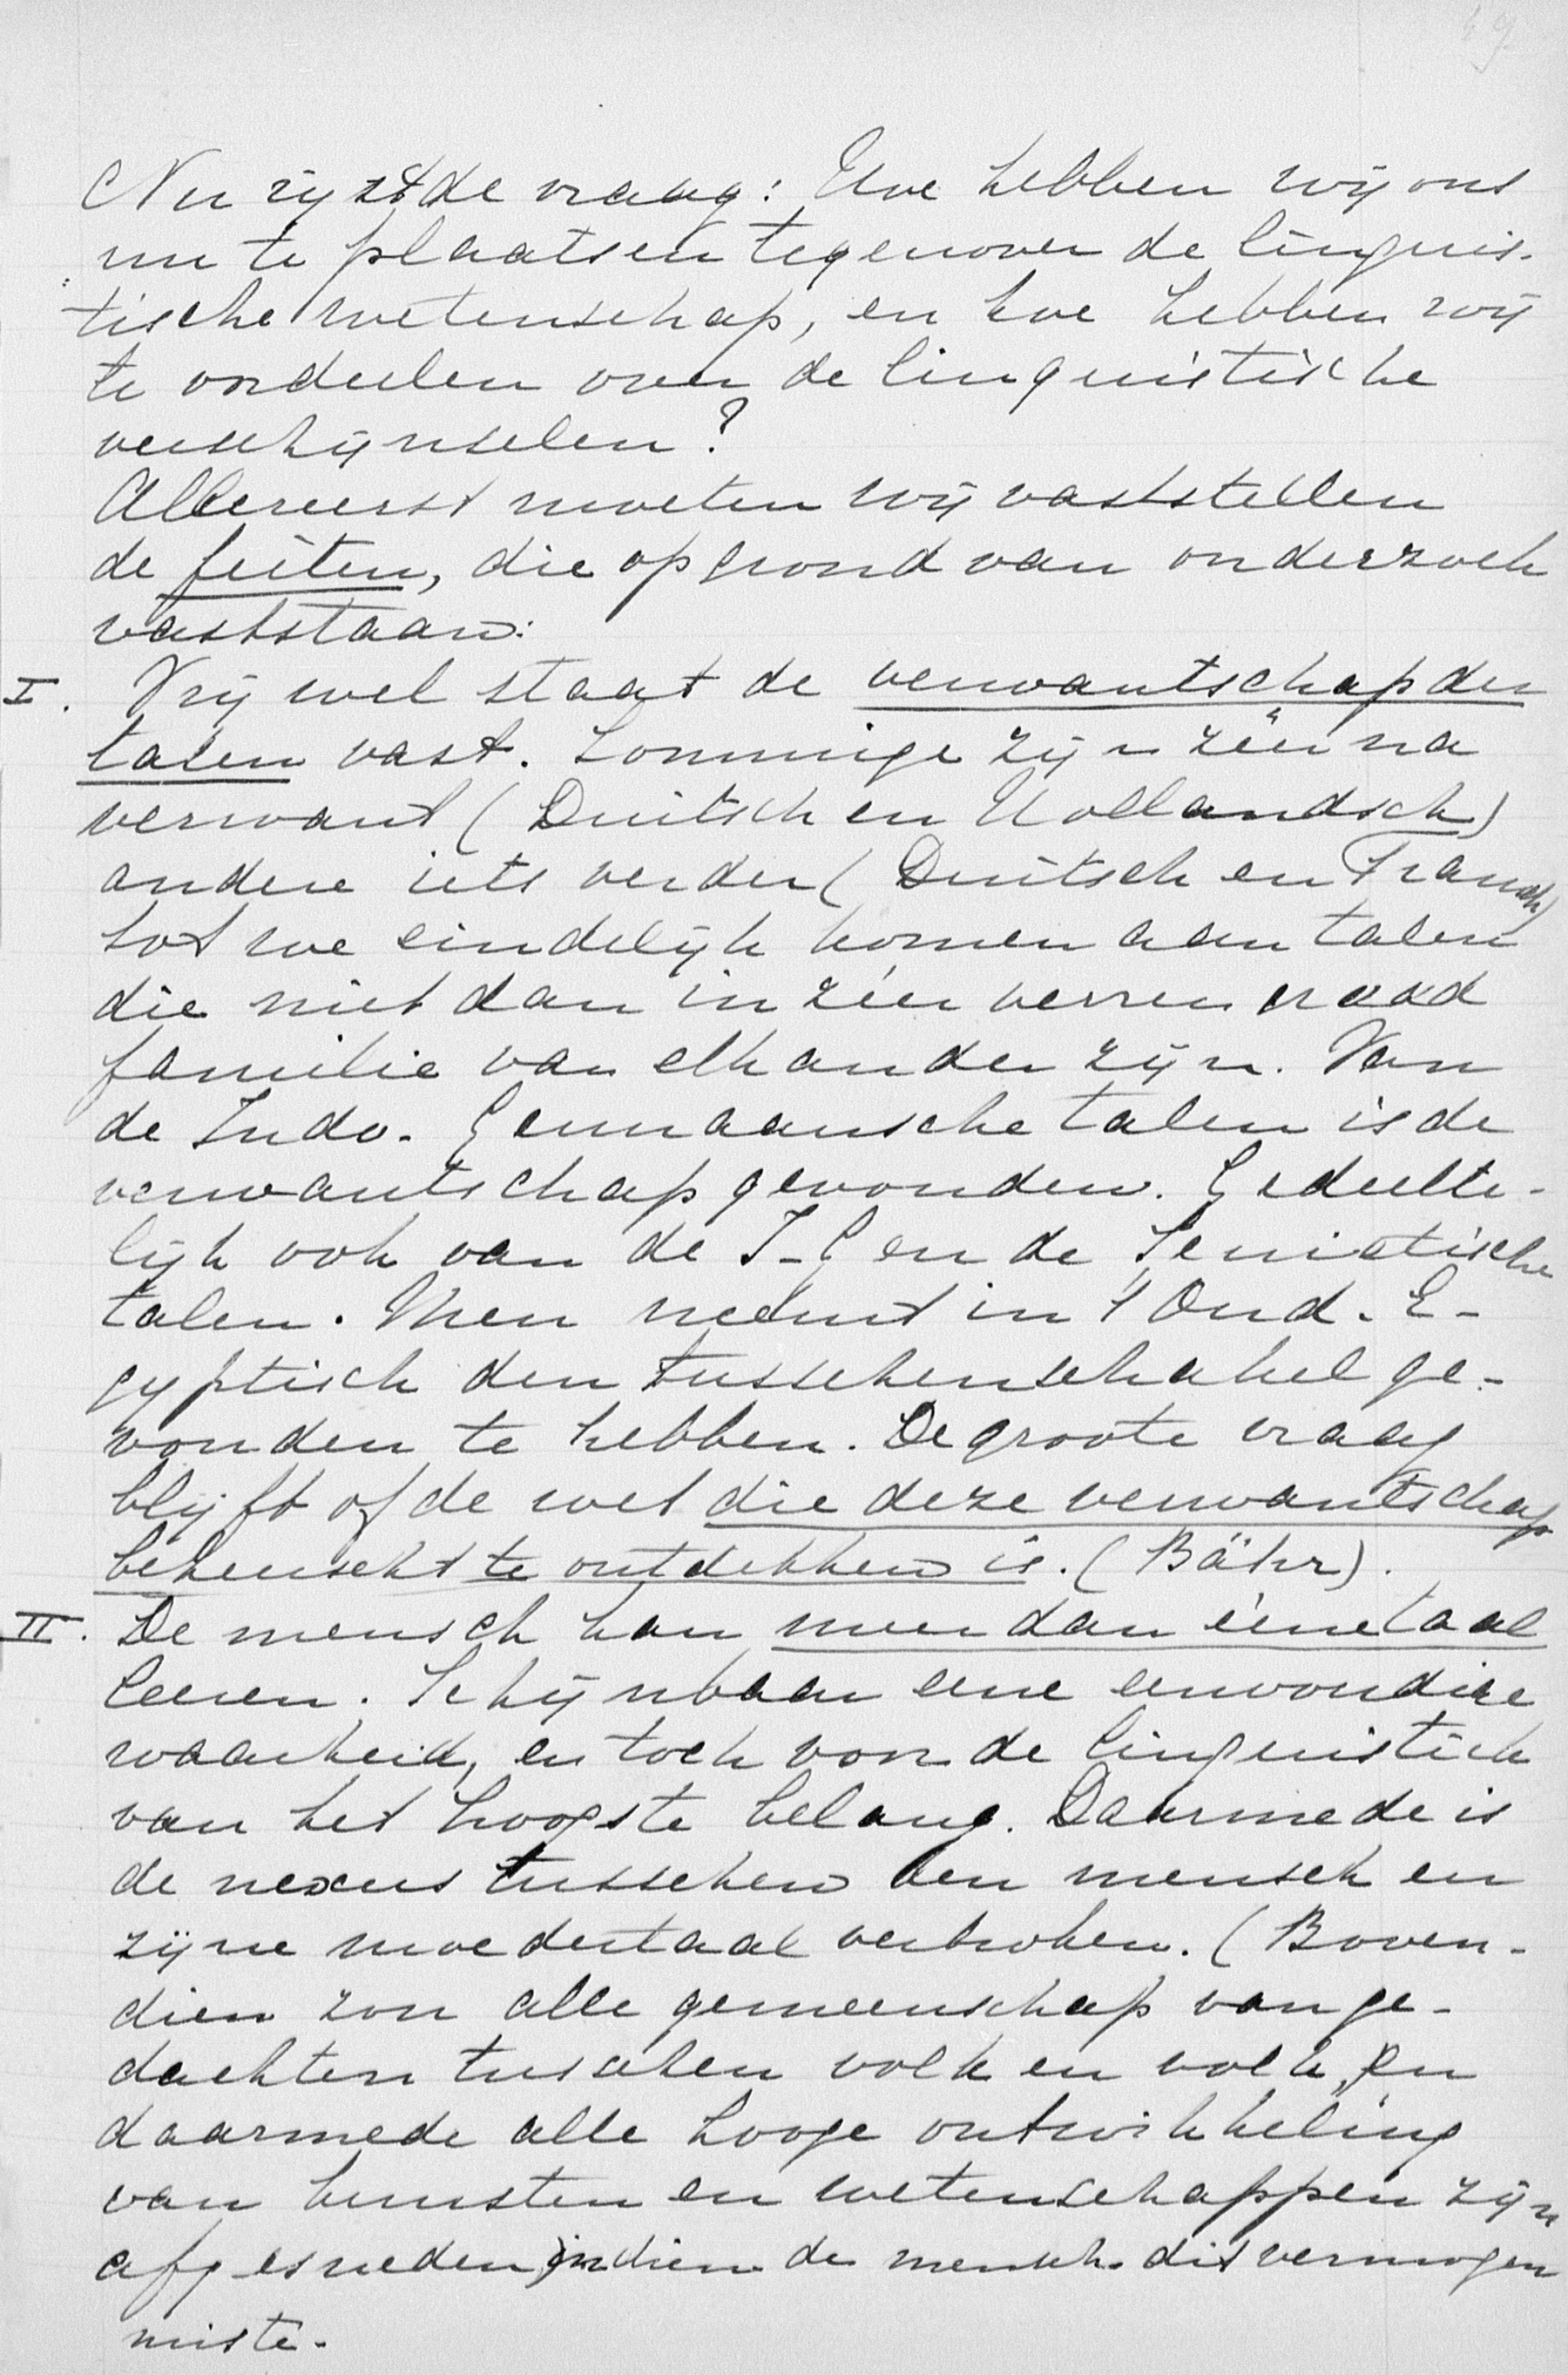 Nu rijst de vraag: Hoe hebben wij ons
nu te plaatsen tegenover de linguis-
tische wetenschap, en hoe hebben wij
te oordeelen over de linguistische
verschijnselen?
Allereerst moeten wij vaststellen
de feiten, die op grond van onderzoek
vaststaan:
I. Vrij wel staat de verwantschap der
talen vast. Sommige zijn zéér na
verwant (Duitsch en Hollandsch)
andere iets verder (Duitsch en Fransch)
tot we eindelijk komen aan talen
die niet dan in zéér verren graad
familie van elkander zijn. Van
de Indo-Germaansche talen is de
verwantschap gevonden. Gedeelte-
lijk ook van de I-G en de Semietische
talen. Men neemt in 't Oud-E-
gyptisch den tusschenschakel ge-
vonden te hebben. De groote vraag
blijft of de wet die deze verwantschap
beheerscht te ontdekken is. (Bähr).
II. De mensch kan meer dan ééne taal
leeren. Schijnbaar eene eenvoudige
waarheid, en toch voor de linguistiek
van het hoogste belang. Daarmede is
de nexus tusschen den mensch en
zijne moedertaal verbroken. (Boven-
dien zou alle gemeenschap van ge-
dachten tusschen volk en volk, en
daarmede alle hooge ontwikkeling
van kunsten en wetenschappen zijn
afgesneden, indien de mensch dit vermogen
miste.